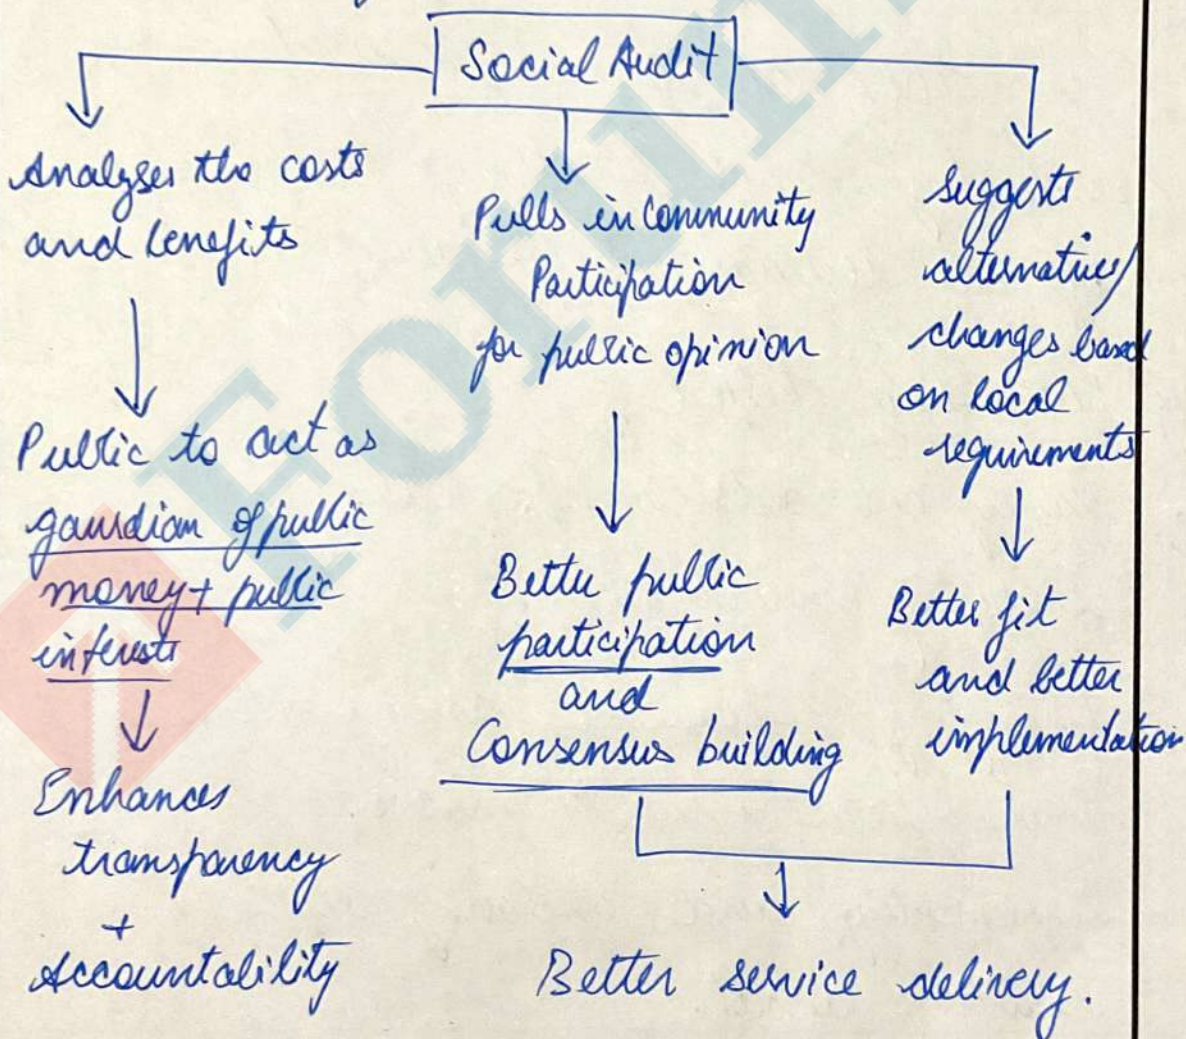 Social Audit
Analyses the costs
and benefits
Public to act as
gaurdian of public
money + public
interests
Enhances
transparency
+
Accountability
Pulls in Community
Participation
for public opinion
Better public
participation
and
Consensus building
suggests
alternatives/
changes based
on local
requirements
Better fit
and better
implementation
Better service delivery.
Forum